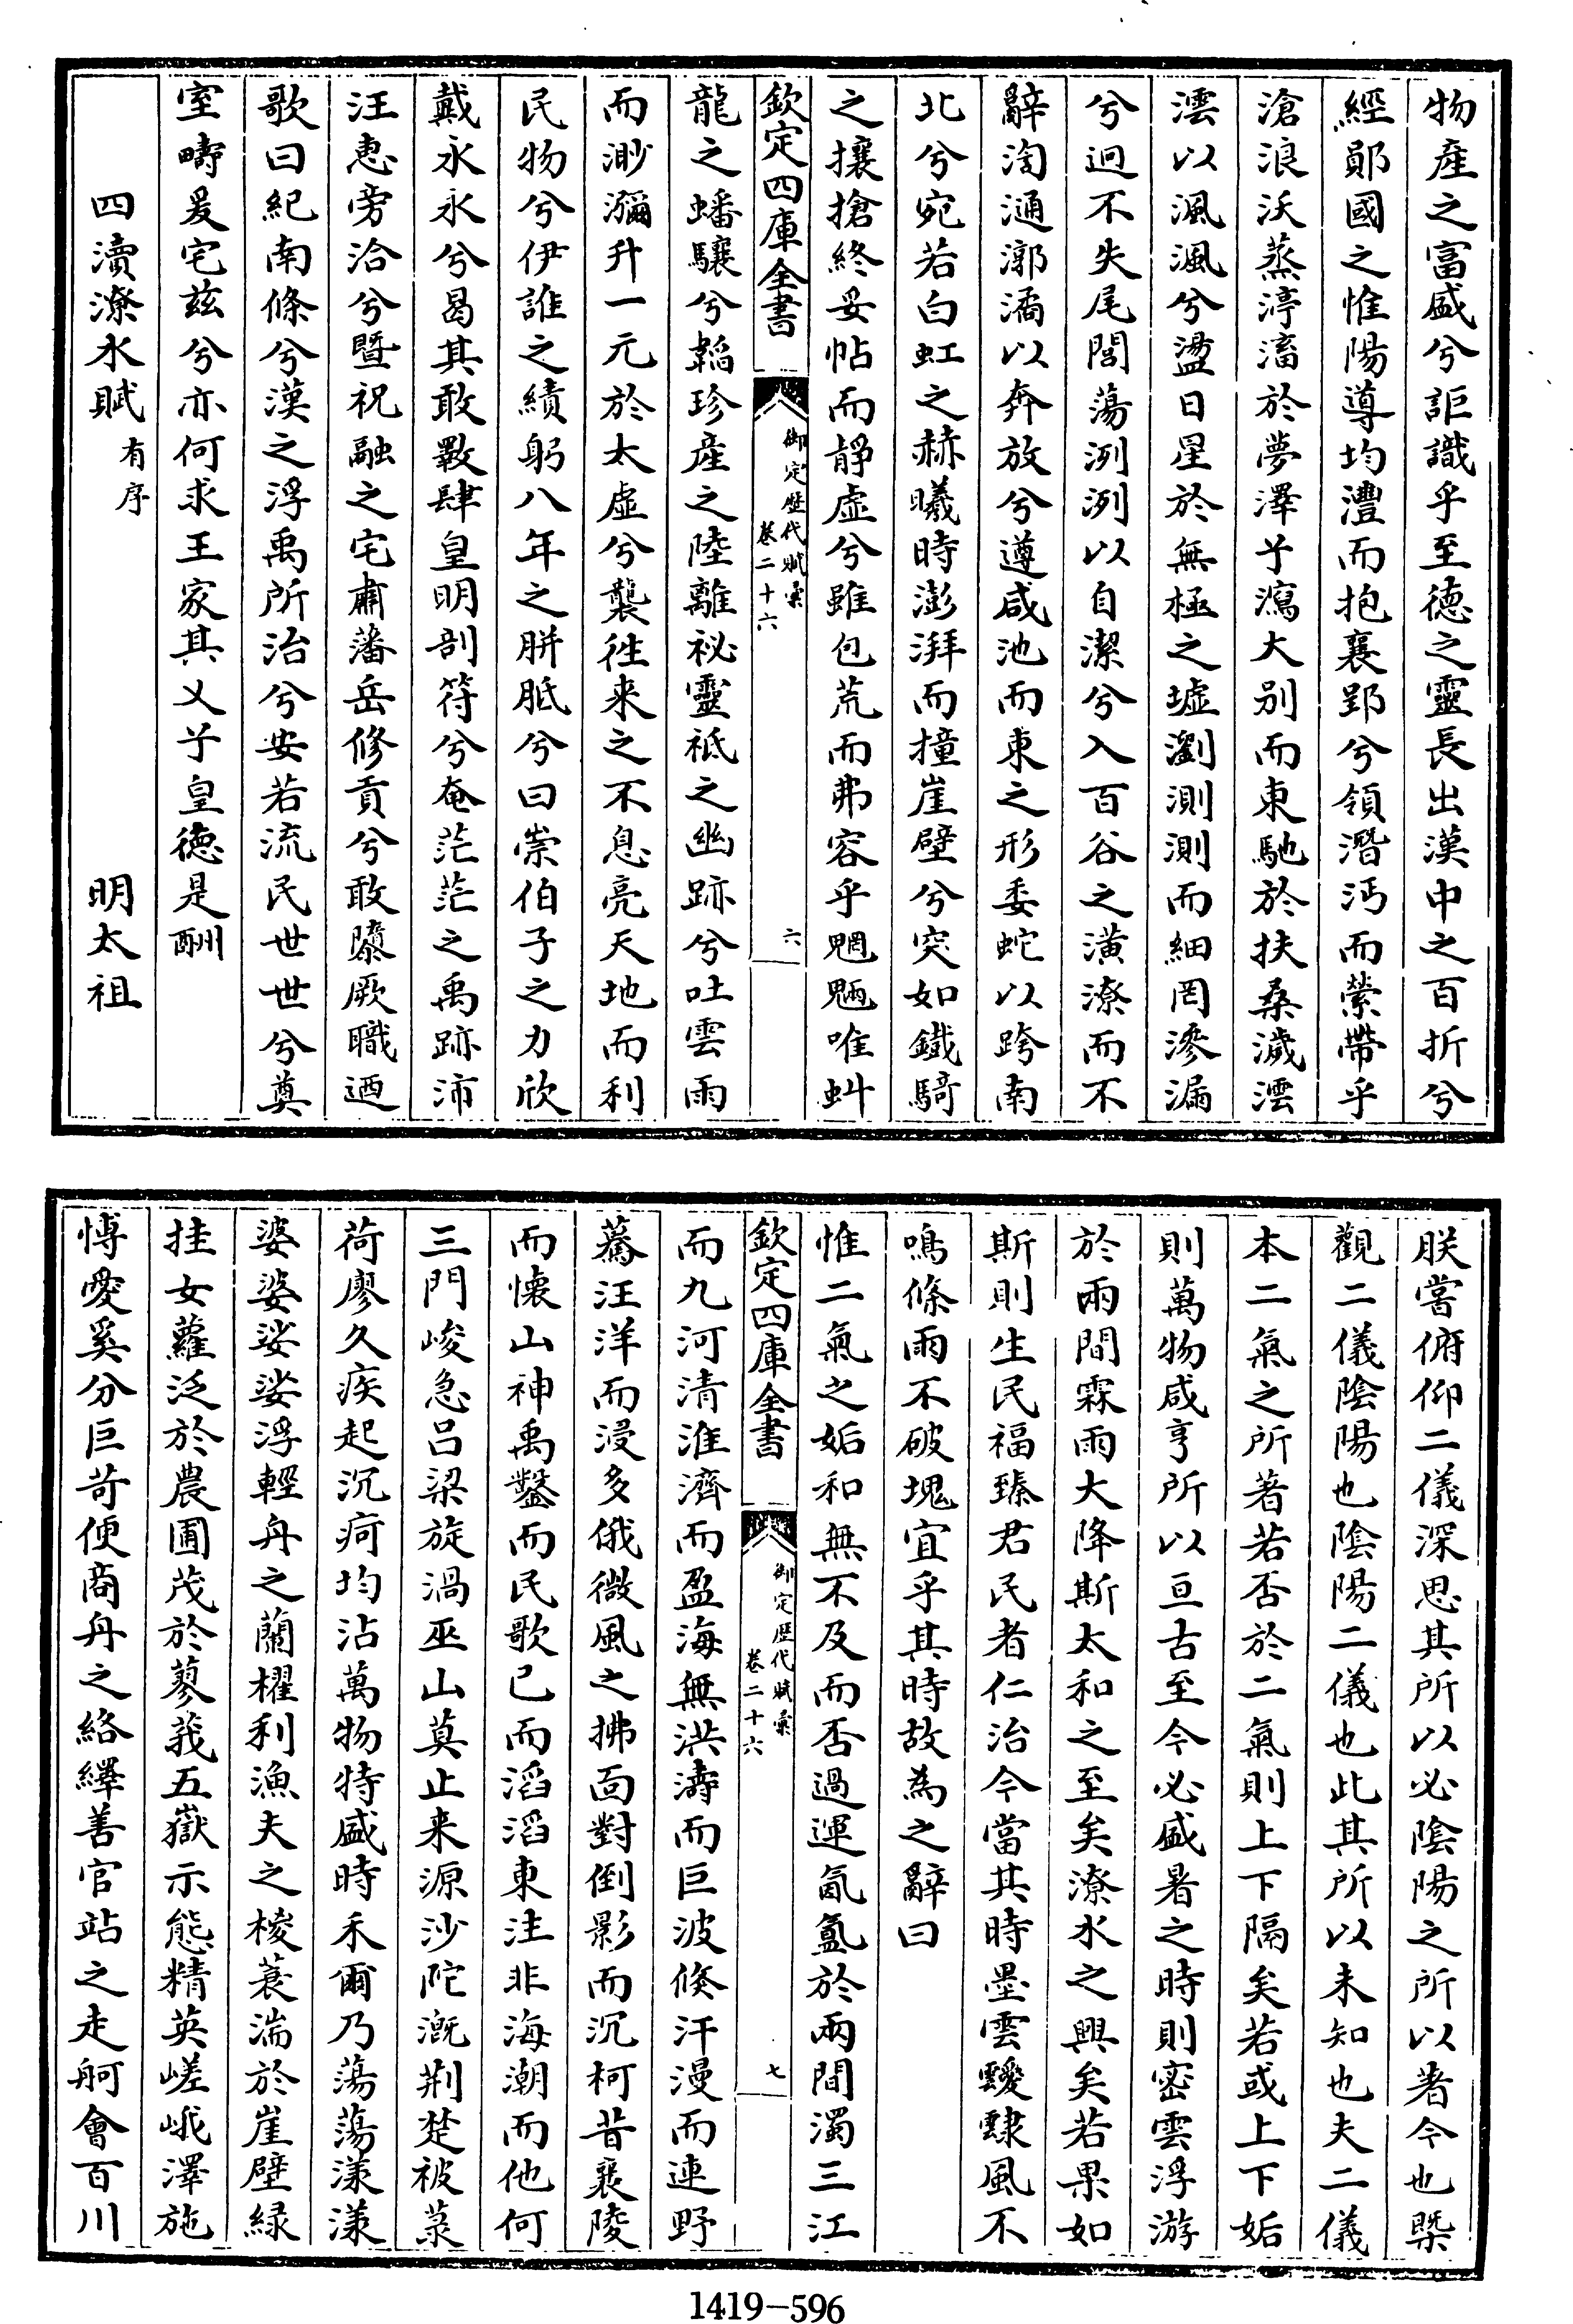 物產之富盛兮詎識乎至德之靈長出漢中之百折兮
經鄖國之惟陽導均澧而抱襄郢兮領潛沔而縈帶乎
滄浪沃蒸渟滀於夢澤兮瀉大別而東馳於扶桑濊澐
澐以渢渢兮盪日星於無極之墟瀏測測而細罔滲漏
兮迥不失尾閭蕩洌洌以自潔兮入百谷之潢潦而不
辭洶湧漷潏以奔放兮遵咸池而東之形委蛇以跨南
北兮宛若白虹之赫曦時澎湃而撞崖壁兮突如鐵騎
之攘搶終妥帖而靜虛兮雖包荒而弗容乎魍魎唯虯
欽定四庫全書
御定歷代賦彙
卷二十六
六
龍之蟠驤兮韜珍產之陸離祕靈祗之幽跡兮吐雲雨
而渺瀰升一元於太虛兮襲往來之不息亮天地而利
民物兮伊誰之績躬八年之胼胝兮曰崇伯子之力欣
戴永永兮曷其敢斁肆皇明剖符兮奄茫茫之禹跡沛
汪惠旁洽兮暨祝融之宅肅藩岳修貢兮敢隳厥職迺
歌曰紀南條兮漢之浮禹所治兮安若流民世世兮奠
室疇爰宅茲兮亦何求王家其乂兮皇德是酬
四瀆潦水賦有序
明太祖
朕嘗俯仰二儀深思其所以必陰陽之所以著今也槩
觀二儀陰陽也陰陽二儀也此其所以未知也夫二儀
本二氣之所著若否於二氣則上下隔矣若或上下姤
則萬物咸亨所以亘古至今必盛暑之時則密雲浮游
於兩間霖雨大降斯太和之至矣潦水之興矣若果如
斯則生民福臻君民者仁治今當其時墨雲靉靆風不
鳴條雨不破塊宜乎其時故為之辭曰
惟二氣之姤和無不及而否過運氤氳於兩間濁三江
欽定四庫全書
御定歷代賦彙
卷二十六
七
而九河清淮濟而盈海無洪濤而巨波倏汗漫而連野
驀汪洋而浸多俄微風之拂面對倒影而沉柯昔襄陵
而懷山神禹鑿而民歌已而滔滔東注非海潮而他何
三門峻急呂梁旋渦巫山莫止來源沙陀溉荆楚被菉
荷廖久疾起沉疴均沾萬物特盛時禾爾乃蕩蕩漾漾
婆婆娑娑浮輕舟之蘭櫂利漁夫之棱蓑湍於崖壁緑
挂女蘿泛於農圃茂於蓼莪五嶽示態精英嵯峨澤施
愽愛奚分巨苛便商舟之絡繹善官站之走舸會百川
1419-596